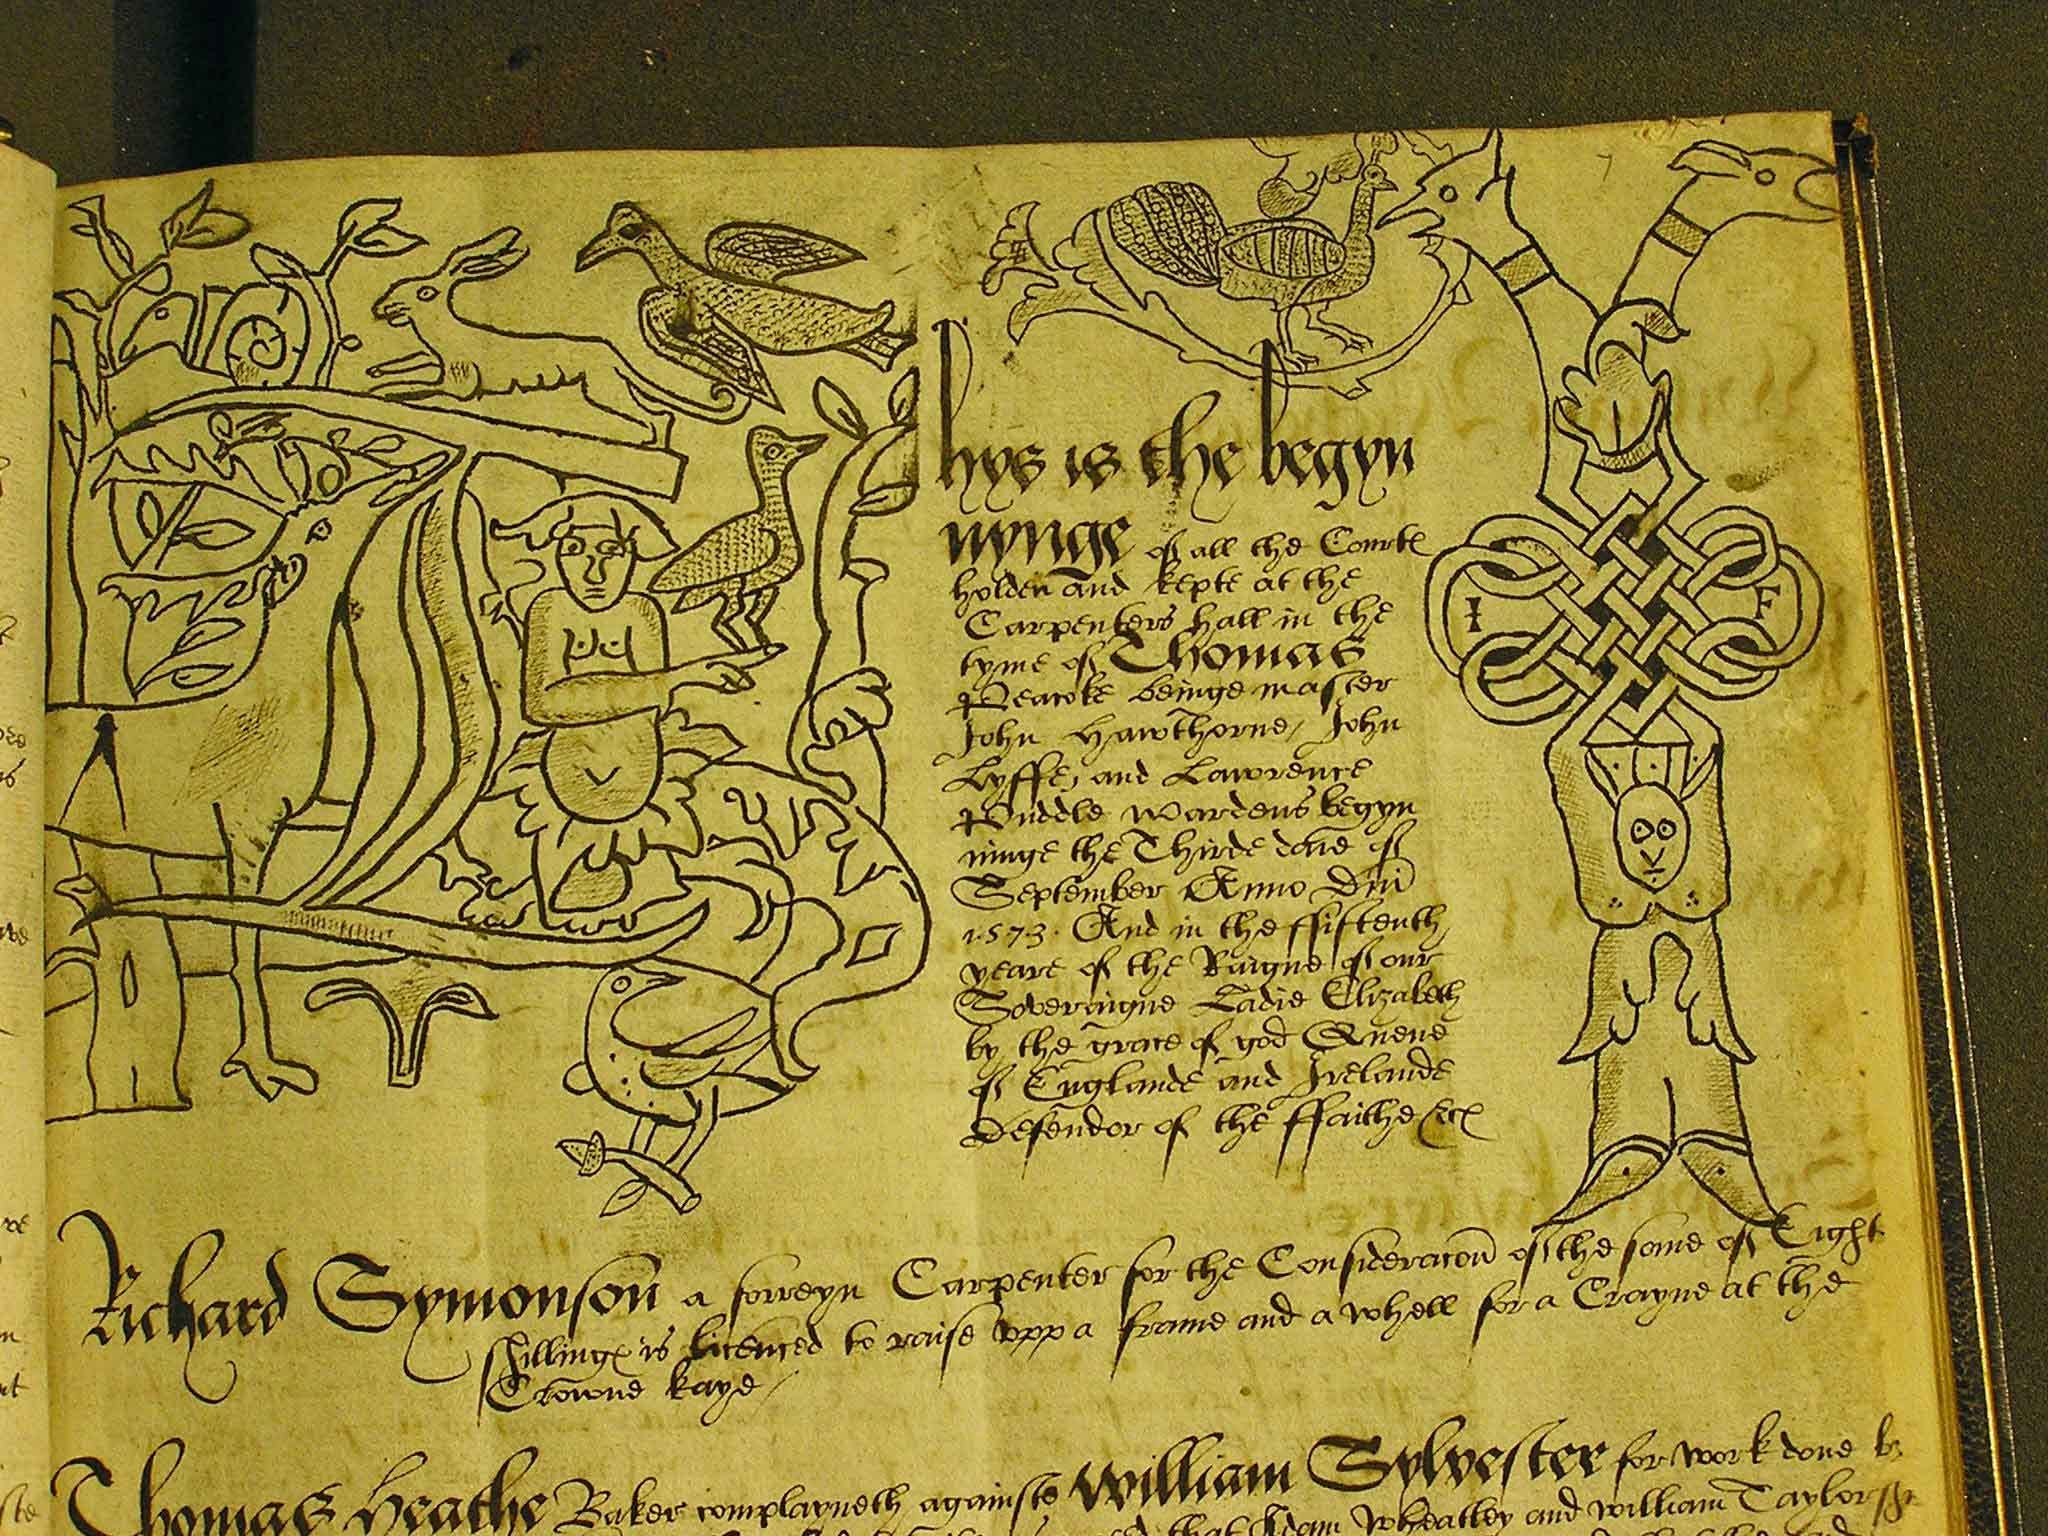 Thys is the begyn
nynge of all the Courtes
holden and kepte at the
Carpenters hall in the
tyme of Thomas
Peacoke beinge master
John Hawthorne, John
Lyffe, and Lawrence
Puddle wardens begyn
ninge the Thirde daie of
September Anno Dni
1573. And in the ffiftenth
yeare of the Raigne of our
Soveraigne Ladie Elizabeth
by the grace of god Quene
of Englande and Irelande
Defendor of the ffaithe &c
I F
Richard Symonson a forreyn Carpenter for the Consideracon of the some of Eight
shillinges is licenced to raise upp a frame and a whell for a Crayne at the
Crowne kaye /
Thomas Heathe Baker complayneth againste William Sylvester for work done
that Adam Wheatley and william Taylor